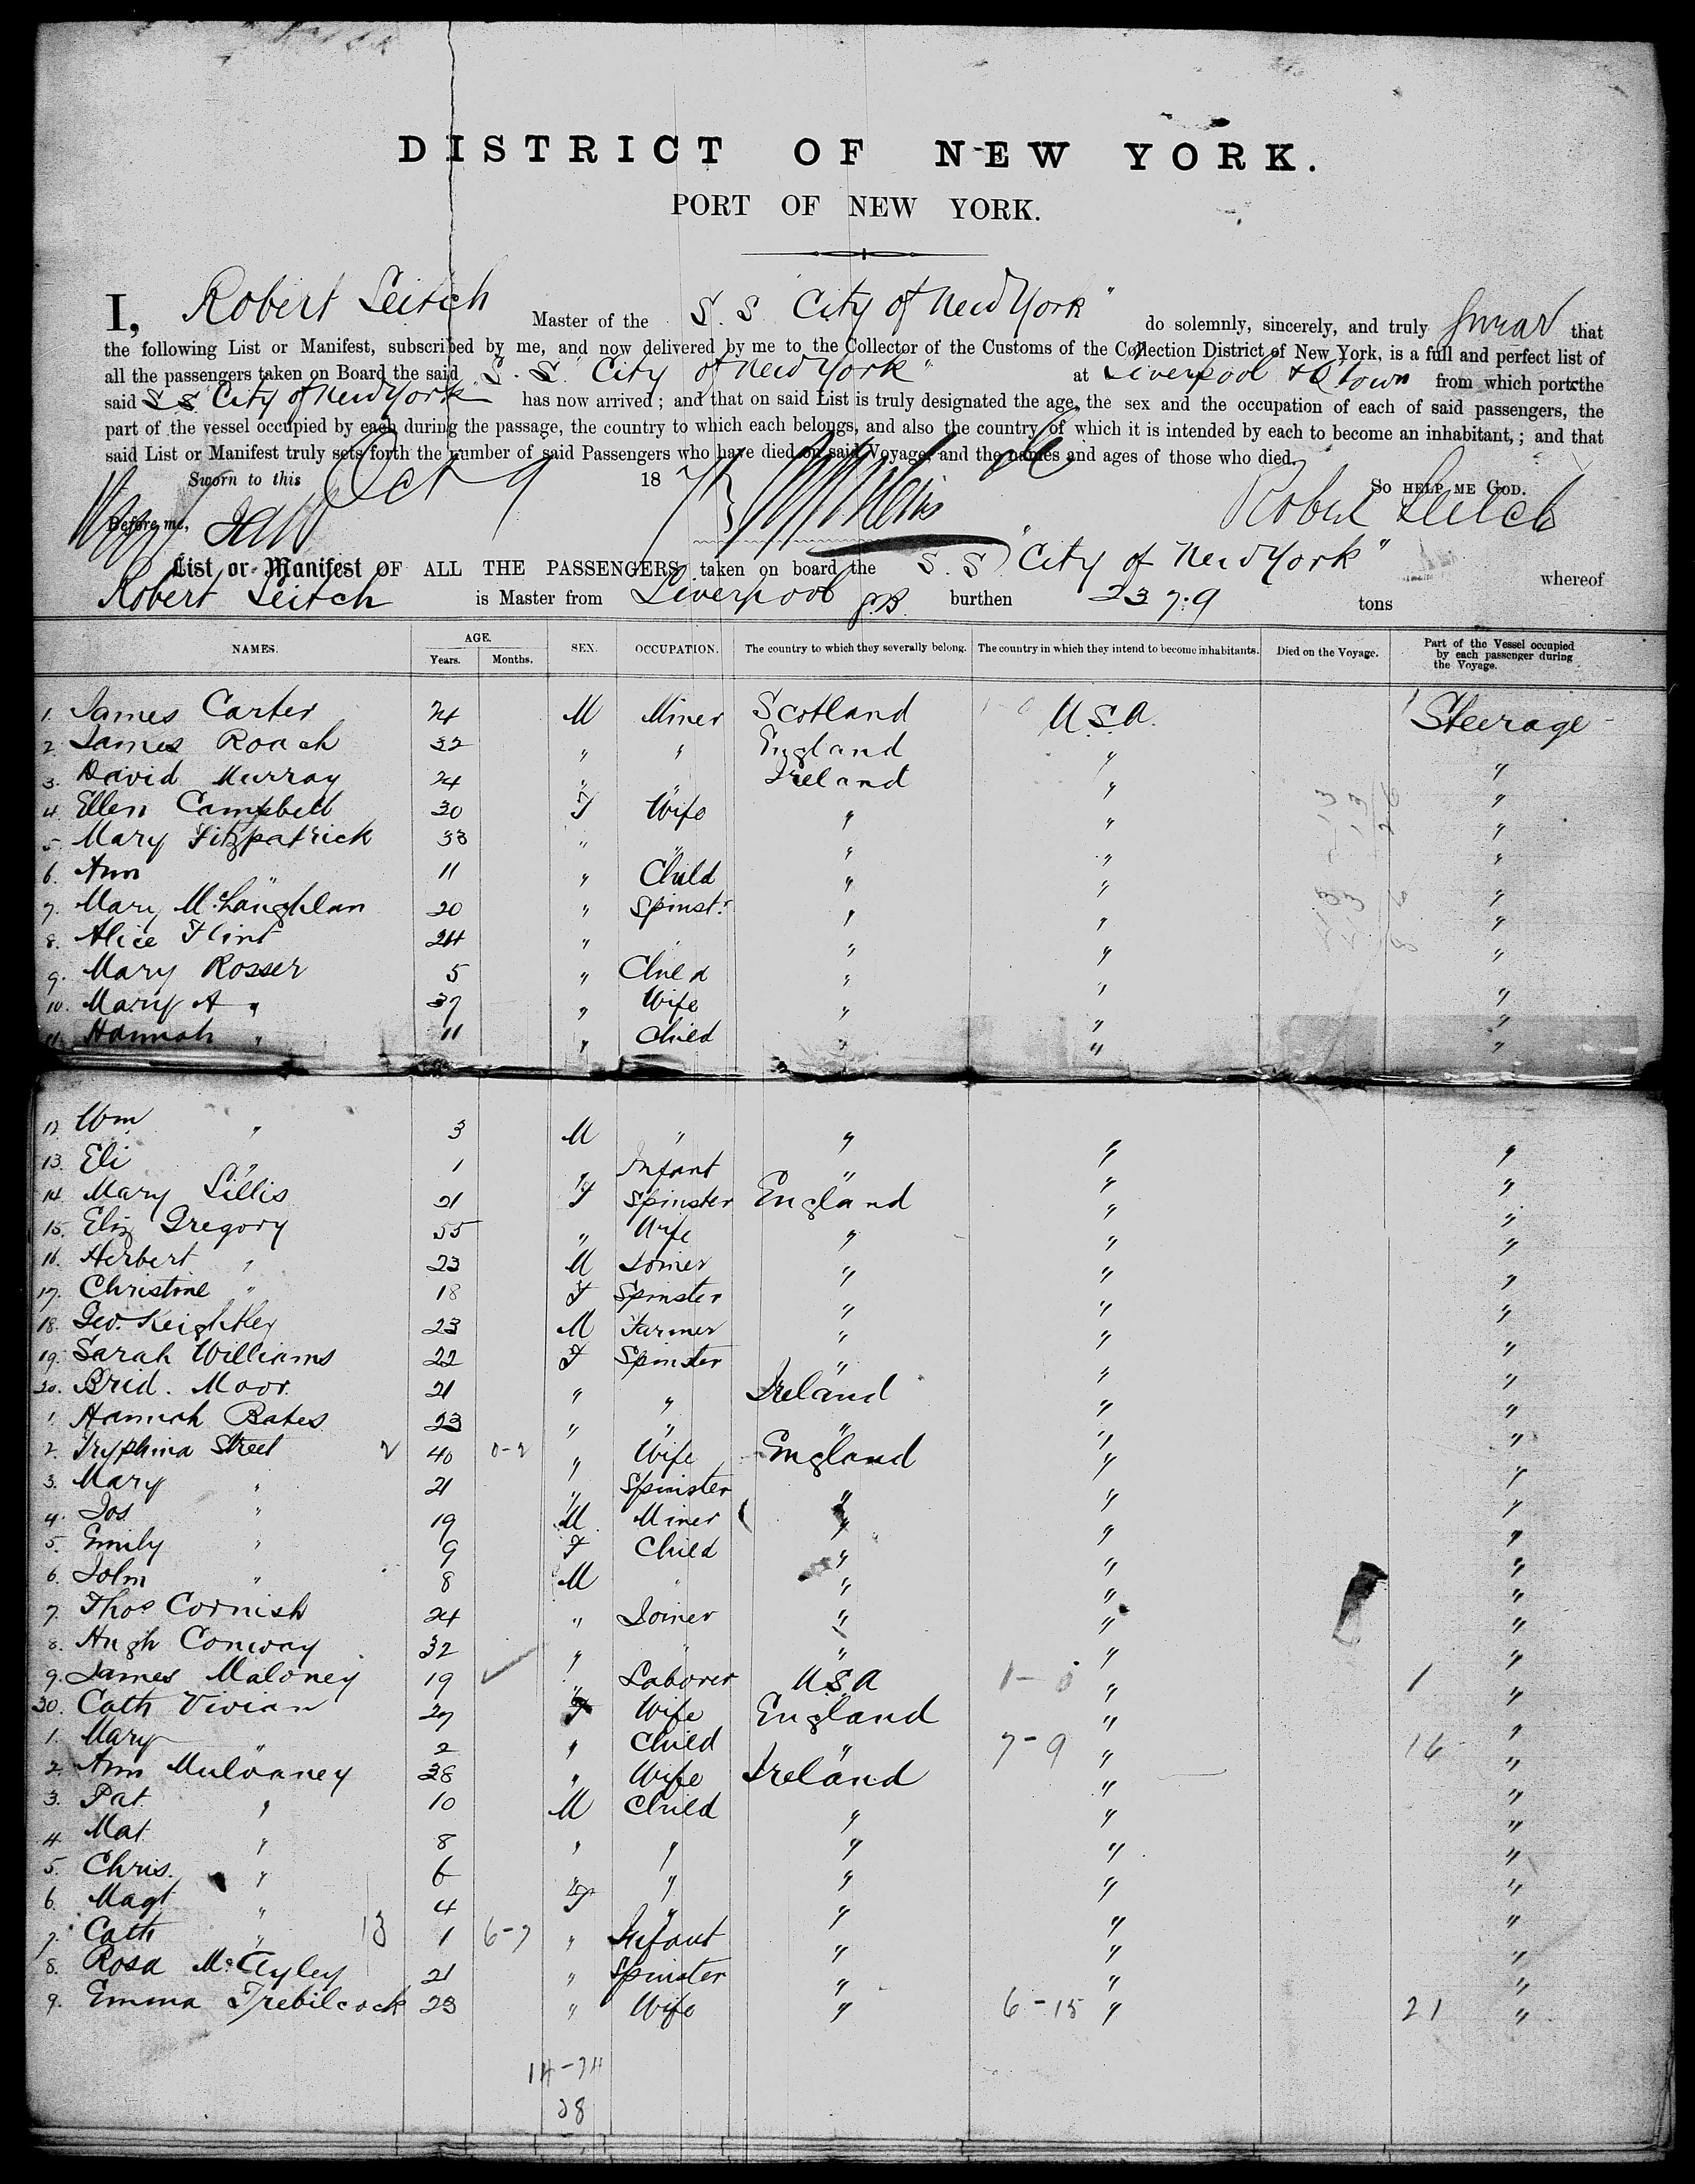 DISTRICT OF NEW YORK.
PORT OF NEW YORK.
I, Robert Leitch Master of the S. S. "City of New York" do solemnly, sincerely, and truly swear that
the following List or Manifest, subscribed by me, and now delivered by me to the Collector of the Customs of the Collection District of New York, is a full and perfect list of
all the passengers taken on Board the said S. S. "City of New York" at Liverpool & Qtown from which port the
said SS "City of New York" has now arrived ; and that on said List is truly designated the age, the sex and the occupation of each of said passengers, the
part of the vessel occupied by each during the passage, the country to which each belongs, and also the country of which it is intended by each to become an inhabitant, ; and that
said List or Manifest truly sets forth the number of said Passengers who have died on said Voyage, and the names and ages of those who died.
Sworn to this Oct 9 18 So HELP ME GOD.
Before me, Robert Leitch
List or Manifest OF ALL THE PASSENGERS taken on board the S. S. "City of New York" whereof
Robert Leitch is Master from Liverpool burthen 2379 tons
NAMES. AGE. Years. Months. SEX. OCCUPATION. The country to which they severally belong. The country in which they intend to become inhabitants. Died on the Voyage. Part of the Vessel occupied by each passenger during the Voyage.
1. James Carter 24 M Miner Scotland U.S.A. Steerage
2. James Roach 32 " " England " "
3. David Murray 24 " " Ireland " "
4. Ellen Campbell 30 F Wife " " "
5. Mary Fitzpatrick 33 " " " " "
6. Ann " 11 " Child " " "
7. Mary McLaughlan 20 " Spinst.r " " "
8. Alice Flint 24 " " " " "
9. Mary Rosser 5 " Child " " "
10. Mary A " 37 " Wife " " "
11. Hannah " 11 " Child " " "
12. Wm " 3 M " " " "
13. Eli " 1 " Infant " " "
14. Mary Lillis 21 F Spinster England " "
15. Eliz Gregory 55 " Wife " " "
16. Herbert " 23 M Joiner " " "
17. Christine " 18 F Spinster " " "
18. Geo. Keightley 23 M Farmer " " "
19. Sarah Williams 22 F Spinster " " "
20. Brid. Moor 21 " " Ireland " "
1. Hannah Bates 23 " " " " "
2. Tryphina Street 40 " Wife England " "
3. Mary " 21 " Spinster " " "
4. Jos " 19 M Miner " " "
5. Emily " 9 F Child " " "
6. John " 8 M " " " "
7. Thos Cornish 24 " Joiner " " "
8. Hugh Conway 32 " " " " "
9. James Maloney 19 " Laborer USA " 1 "
30. Cath Vivian 27 F Wife England " "
1. Mary " 2 " Child " 7-9 " 16 "
2. Ann Mulvanney 38 " Wife Ireland " "
3. Pat " 10 M Child " " "
4. Mat " 8 " " " " "
5. Chris. " 6 " " " " "
6. Magt " 4 F " " " "
7. Cath " 13 1 6-7 " Infant " " "
8. Rosa McAyley 21 " Spinster " " "
9. Emma Trebilcock 23 " Wife " 6-15 " 21 "